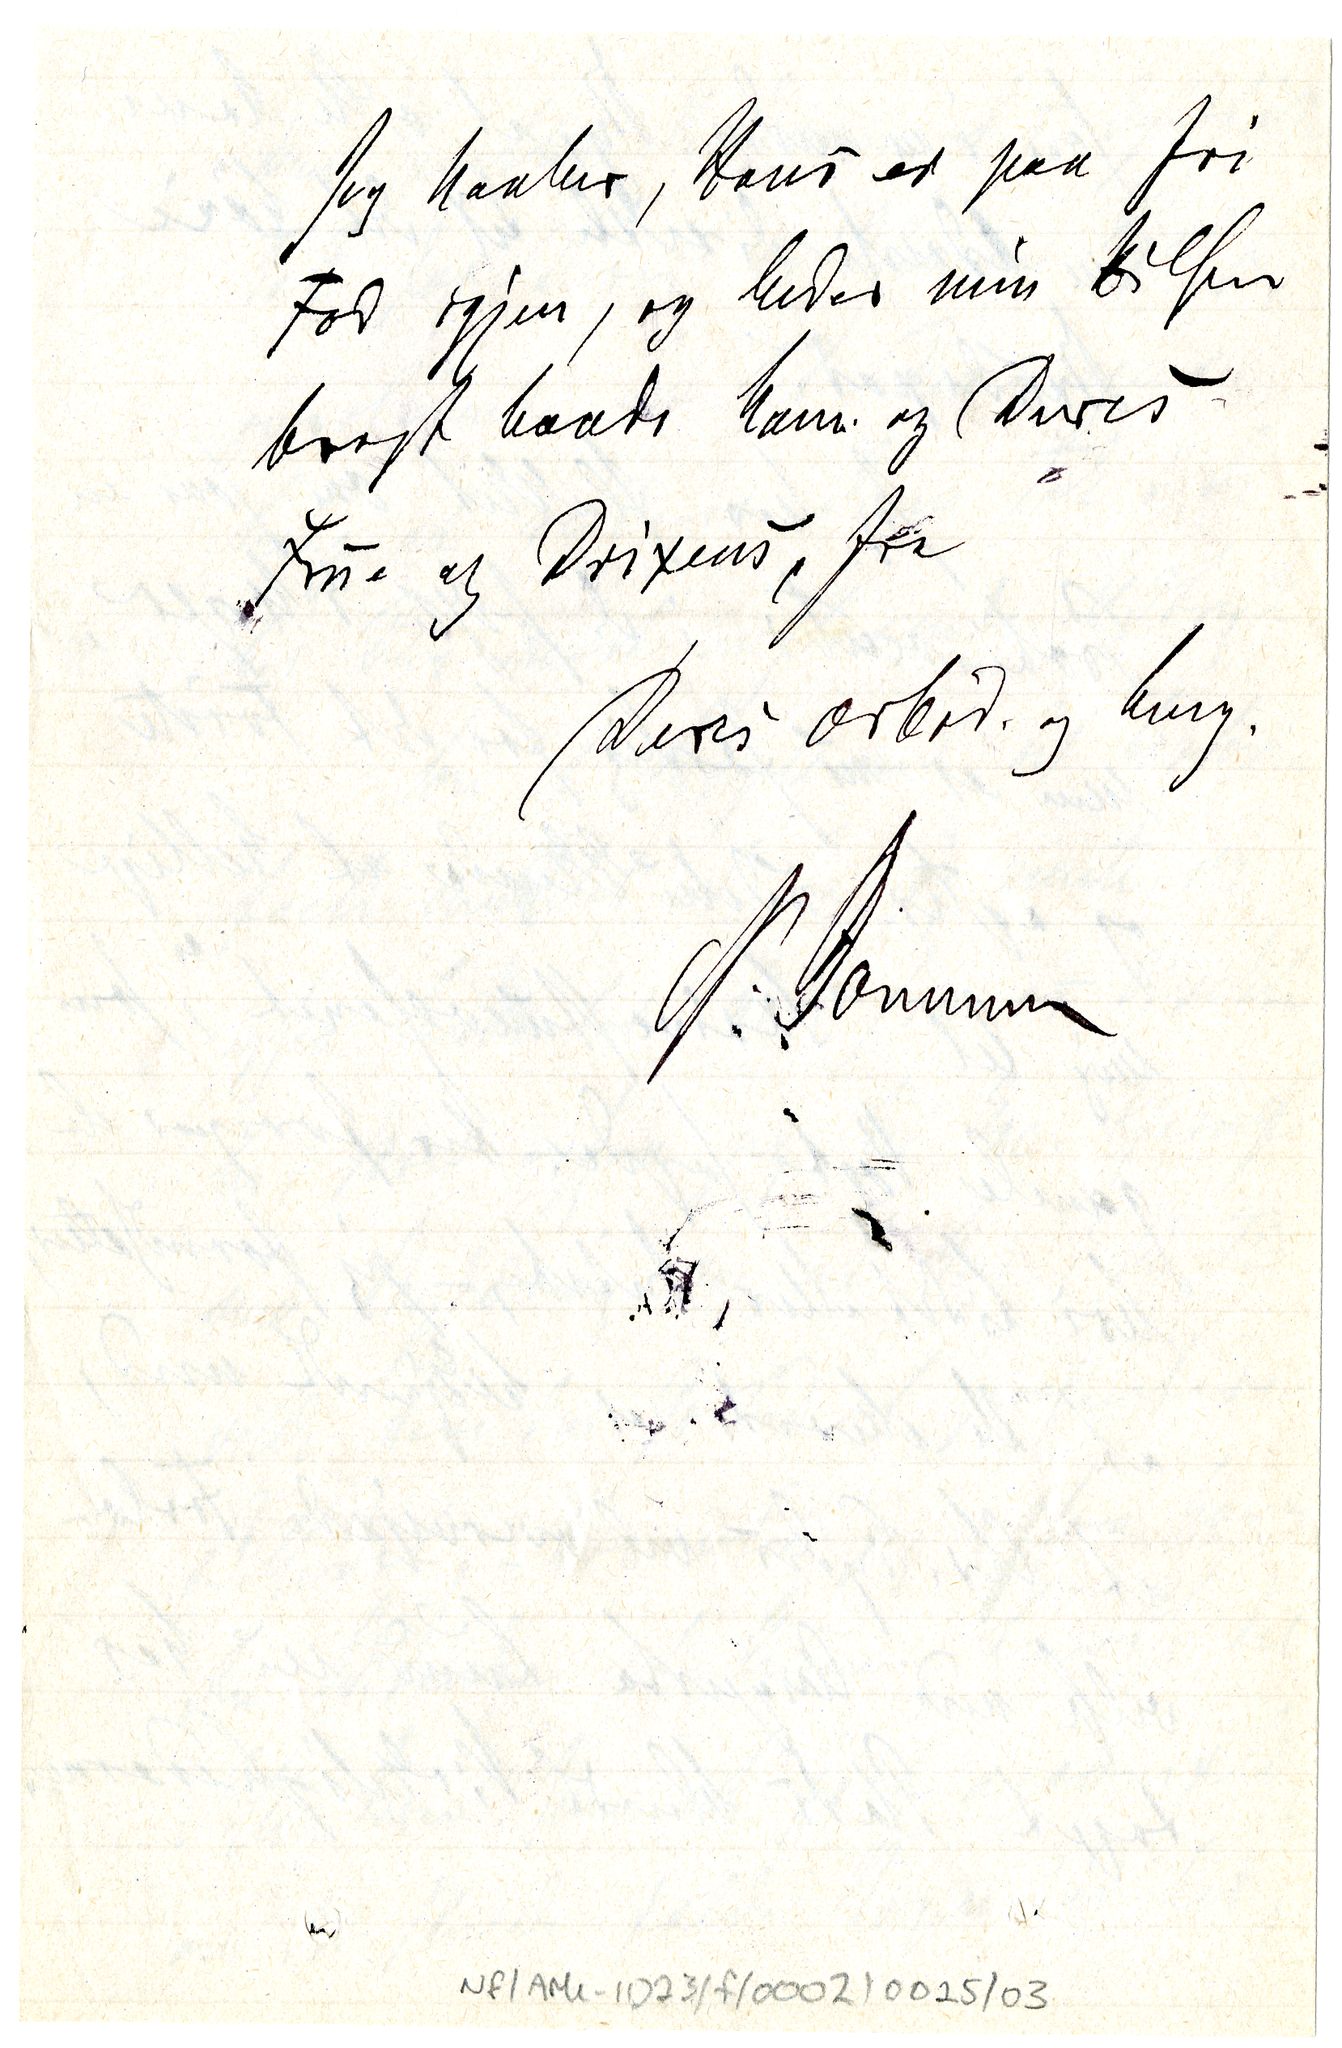 Jeg haaber, Hans er paa fri
Fod igjen, og beder min Hilsen
bragt baade ham og Deres
Frue og Drixens, fra
Deres ærbød. og heng.
NF/ARK-1023/f/0002/0025/03